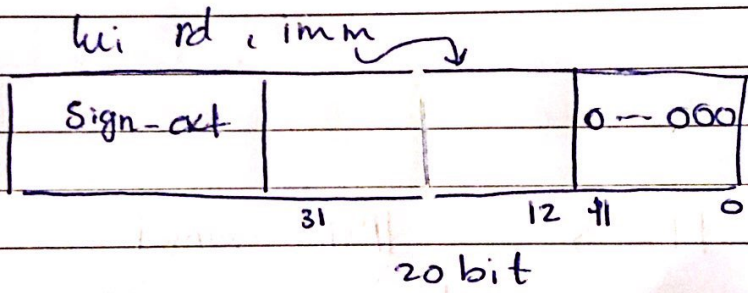 lui rd, imm
Sign-ext 0--000
31 12 11 0
20 bit